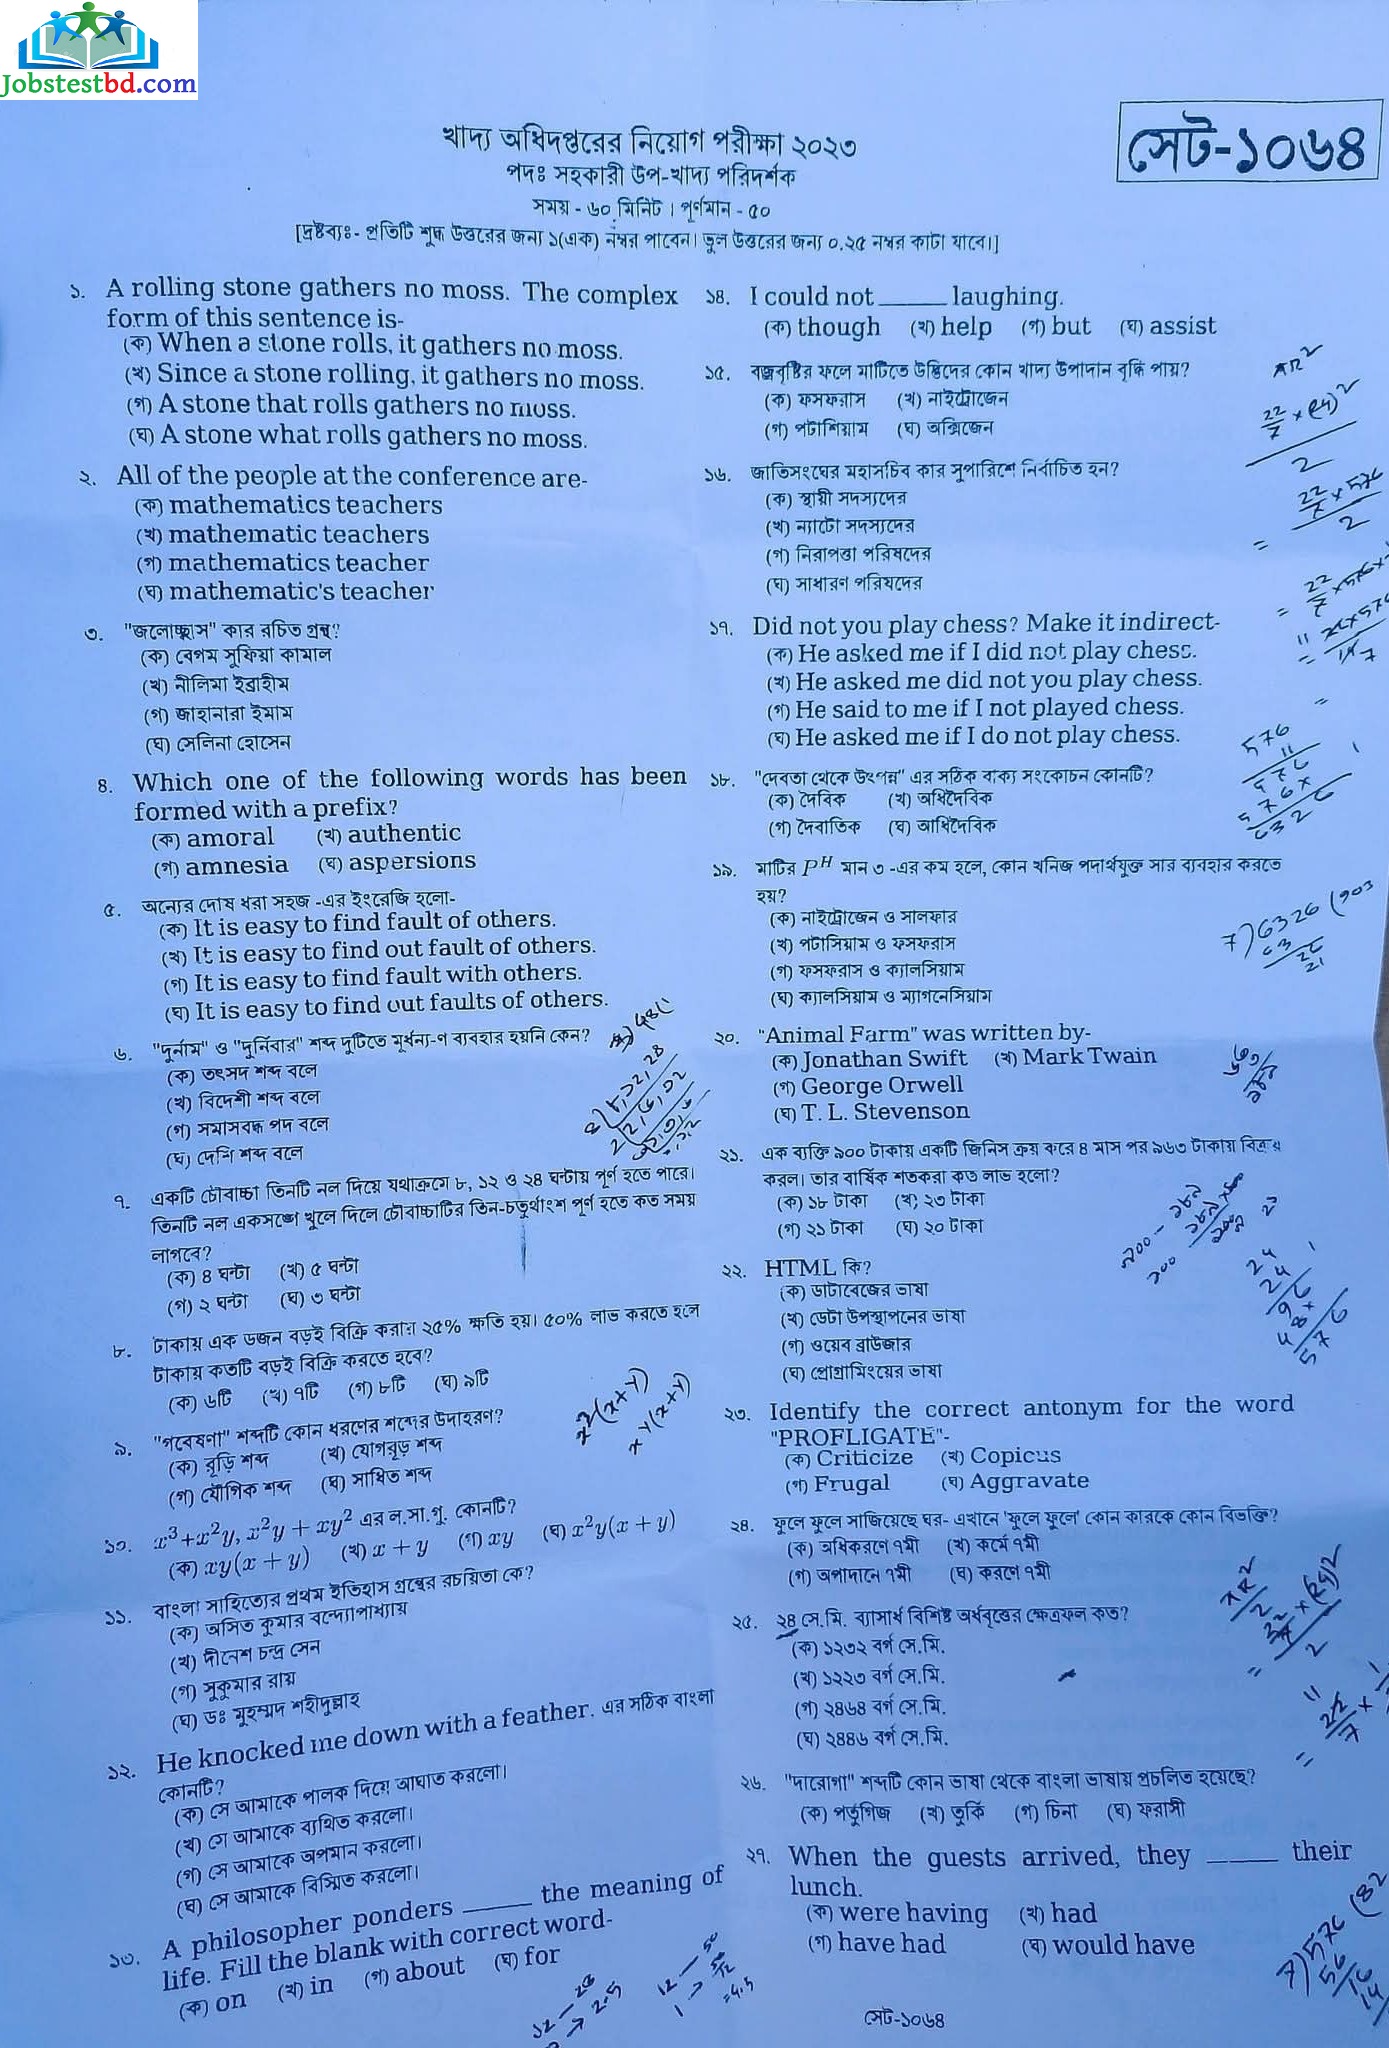 Jobstestbd.com
খাদ্য অধিদপ্তরের নিয়োগ পরীক্ষা ২০২৩
পদঃ সহকারী উপ-খাদ্য পরিদর্শক
সময় - ৬০ মিনিট । পূর্ণমান - ৫০
[দ্রষ্টব্যঃ- প্রতিটি শুদ্ধ উত্তরের জন্য ১(এক) নম্বর পাবেন। ভুল উত্তরের জন্য ০.২৫ নম্বর কাটা যাবে।]
সেট-১০৬৪
১. A rolling stone gathers no moss. The complex
form of this sentence is-
(ক) When a stone rolls, it gathers no moss.
(খ) Since a stone rolling, it gathers no moss.
(গ) A stone that rolls gathers no moss.
(ঘ) A stone what rolls gathers no moss.
২. All of the people at the conference are-
(ক) mathematics teachers
(খ) mathematic teachers
(গ) mathematics teacher
(ঘ) mathematic's teacher
৩. "জলোচ্ছ্বাস" কার রচিত গ্রন্থ?
(ক) বেগম সুফিয়া কামাল
(খ) নীলিমা ইব্রাহীম
(গ) জাহানারা ইমাম
(ঘ) সেলিনা হোসেন
৪. Which one of the following words has been
formed with a prefix?
(ক) amoral (খ) authentic
(গ) amnesia (ঘ) aspersions
৫. অন্যের দোষ ধরা সহজ -এর ইংরেজি হলো-
(ক) It is easy to find fault of others.
(খ) It is easy to find out fault of others.
(গ) It is easy to find fault with others.
(ঘ) It is easy to find out faults of others.
৬. "দুর্নাম" ও "দুর্নিবার" শব্দ দুটিতে মূর্ধন্য-ণ ব্যবহার হয়নি কেন?
(ক) তৎসদ শব্দ বলে
(খ) বিদেশী শব্দ বলে
(গ) সমাসবদ্ধ পদ বলে
(ঘ) দেশি শব্দ বলে
৭. একটি চৌবাচ্চা তিনটি নল দিয়ে যথাক্রমে ৮, ১২ ও ২৪ ঘন্টায় পূর্ণ হতে পারে।
তিনটি নল একসঙ্গে খুলে দিলে চৌবাচ্চাটির তিন-চতুর্থাংশ পূর্ণ হতে কত সময়
লাগবে?
(ক) ৪ ঘন্টা (খ) ৫ ঘন্টা
(গ) ২ ঘন্টা (ঘ) ৩ ঘন্টা
৮. টাকায় এক ডজন বড়ই বিক্রি করায় ২৫% ক্ষতি হয়। ৫০% লাভ করতে হলে
টাকায় কতটি বড়ই বিক্রি করতে হবে?
(ক) ৬টি (খ) ৭টি (গ) ৮টি (ঘ) ৯টি
৯. "গবেষণা" শব্দটি কোন ধরণের শব্দের উদাহরণ?
(ক) রূঢ়ি শব্দ (খ) যোগরূঢ় শব্দ
(গ) যৌগিক শব্দ (ঘ) সাধিত শব্দ
১০. x³+x²y, x²y + xy² এর ল.সা.গু. কোনটি?
(ক) xy(x + y) (খ) x + y (গ) xy (ঘ) x²y(x + y)
১১. বাংলা সাহিত্যের প্রথম ইতিহাস গ্রন্থের রচয়িতা কে?
(ক) অসিত কুমার বন্দ্যোপাধ্যায়
(খ) দীনেশ চন্দ্র সেন
(গ) সুকুমার রায়
(ঘ) ডঃ মুহম্মদ শহীদুল্লাহ
১২. He knocked me down with a feather. এর সঠিক বাংলা
কোনটি?
(ক) সে আমাকে পালক দিয়ে আঘাত করলো।
(খ) সে আমাকে ব্যথিত করলো।
(গ) সে আমাকে অপমান করলো।
(ঘ) সে আমাকে বিস্মিত করলো।
১৩. A philosopher ponders _____ the meaning of
life. Fill the blank with correct word-
(ক) on (খ) in (গ) about (ঘ) for
১৪. I could not _____ laughing.
(ক) though (খ) help (গ) but (ঘ) assist
১৫. বজ্রবৃষ্টির ফলে মাটিতে উদ্ভিদের কোন খাদ্য উপাদান বৃদ্ধি পায়?
(ক) ফসফরাস (খ) নাইট্রোজেন
(গ) পটাশিয়াম (ঘ) অক্সিজেন
১৬. জাতিসংঘের মহাসচিব কার সুপারিশে নির্বাচিত হন?
(ক) স্থায়ী সদস্যদের
(খ) ন্যাটো সদস্যদের
(গ) নিরাপত্তা পরিষদের
(ঘ) সাধারণ পরিষদের
১৭. Did not you play chess? Make it indirect-
(ক) He asked me if I did not play chess.
(খ) He asked me did not you play chess.
(গ) He said to me if I not played chess.
(ঘ) He asked me if I do not play chess.
১৮. "দেবতা থেকে উৎপন্ন" এর সঠিক বাক্য সংকোচন কোনটি?
(ক) দৈবিক (খ) অধিদৈবিক
(গ) দৈবাতিক (ঘ) আধিদৈবিক
১৯. মাটির Pᴴ মান ৩ -এর কম হলে, কোন খনিজ পদার্থযুক্ত সার ব্যবহার করতে
হয়?
(ক) নাইট্রোজেন ও সালফার
(খ) পটাসিয়াম ও ফসফরাস
(গ) ফসফরাস ও ক্যালসিয়াম
(ঘ) ক্যালসিয়াম ও ম্যাগনেসিয়াম
২০. "Animal Farm" was written by-
(ক) Jonathan Swift (খ) Mark Twain
(গ) George Orwell
(ঘ) T. L. Stevenson
২১. এক ব্যক্তি ৯০০ টাকায় একটি জিনিস ক্রয় করে ৪ মাস পর ৯৬৩ টাকায় বিক্রয়
করল। তার বার্ষিক শতকরা কত লাভ হলো?
(ক) ১৮ টাকা (খ) ২৩ টাকা
(গ) ২১ টাকা (ঘ) ২০ টাকা
২২. HTML কি?
(ক) ডাটাবেজের ভাষা
(খ) ডেটা উপস্থাপনের ভাষা
(গ) ওয়েব ব্রাউজার
(ঘ) প্রোগ্রামিংয়ের ভাষা
২৩. Identify the correct antonym for the word
"PROFLIGATE"-
(ক) Criticize (খ) Copicus
(গ) Frugal (ঘ) Aggravate
২৪. ফুলে ফুলে সাজিয়েছে ঘর- এখানে 'ফুলে ফুলে' কোন কারকে কোন বিভক্তি?
(ক) অধিকরণে ৭মী (খ) কর্মে ৭মী
(গ) অপাদানে ৭মী (ঘ) করণে ৭মী
২৫. ২৪ সে.মি. ব্যাসার্ধ বিশিষ্ট অর্ধবৃত্তের ক্ষেত্রফল কত?
(ক) ১২৩২ বর্গ সে.মি.
(খ) ১২২৩ বর্গ সে.মি.
(গ) ২৪৬৪ বর্গ সে.মি.
(ঘ) ২৪৪৬ বর্গ সে.মি.
২৬. "দারোগা" শব্দটি কোন ভাষা থেকে বাংলা ভাষায় প্রচলিত হয়েছে?
(ক) পর্তুগিজ (খ) তুর্কি (গ) চিনা (ঘ) ফরাসী
২৭. When the guests arrived, they _____ their
lunch.
(ক) were having (খ) had
(গ) have had (ঘ) would have
সেট-১০৬৪